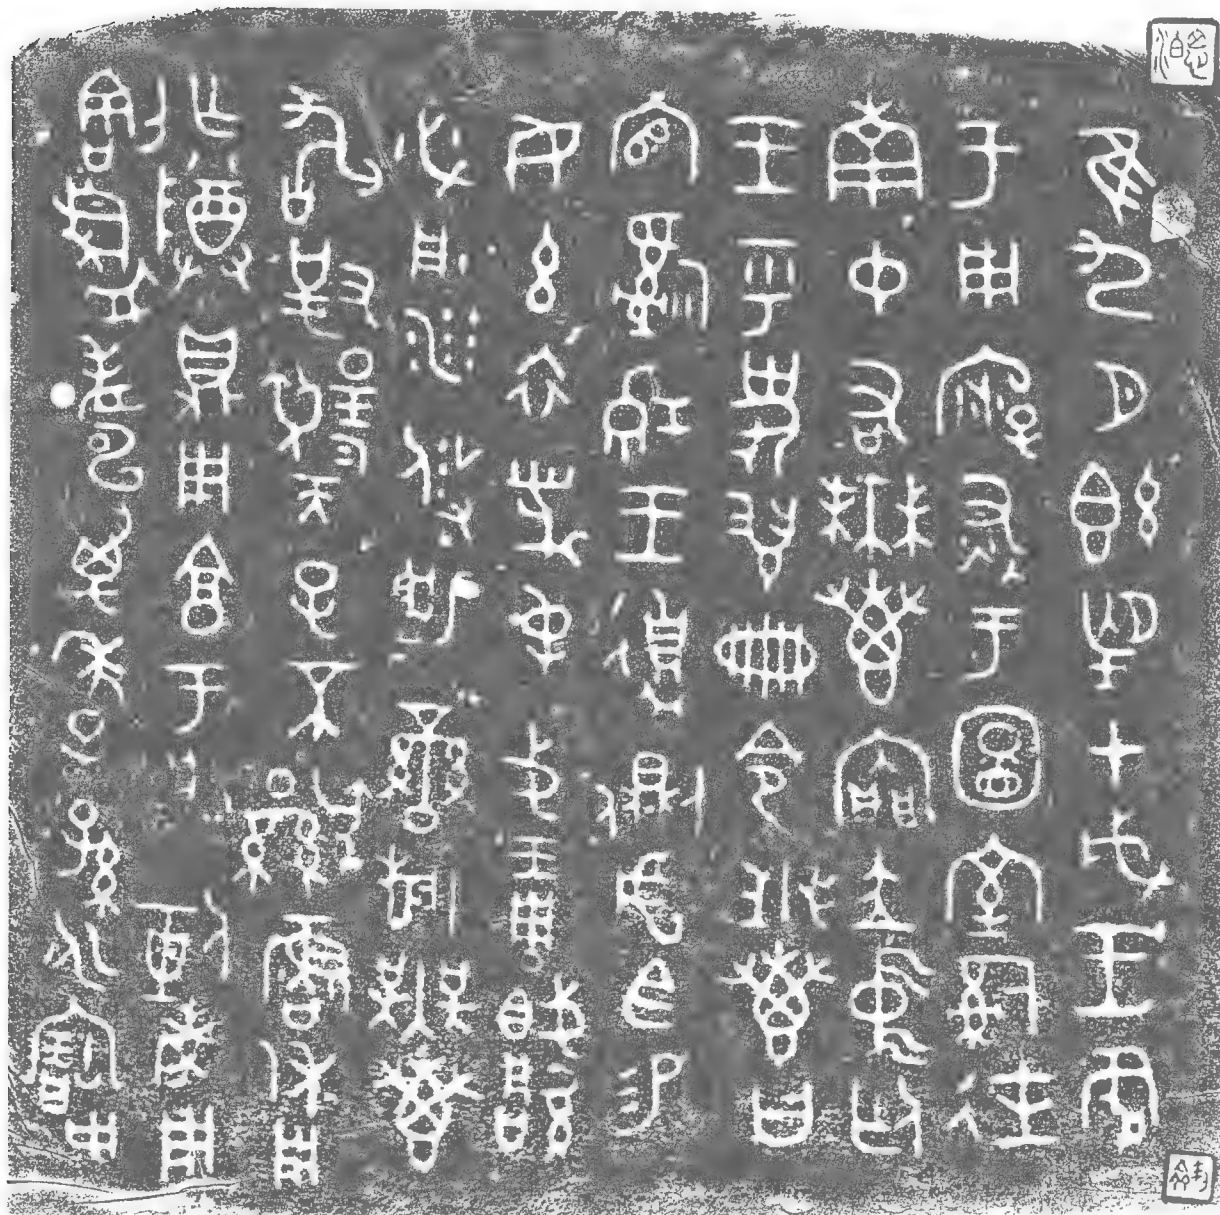 隹九月既望甲戌王各
于周廟述于圖室嗣徒
南中右無叀內門立中廷
王乎史翏冊令無叀曰
官嗣穆王遉側虎臣易
女玄衣黹屯戈琱胾縞
必彤沙攸勒鑾旂無叀
敢對揚天子不顯魯休用
乍尊鼎用享于朕剌考用
割眉壽萬年子孫永寶用